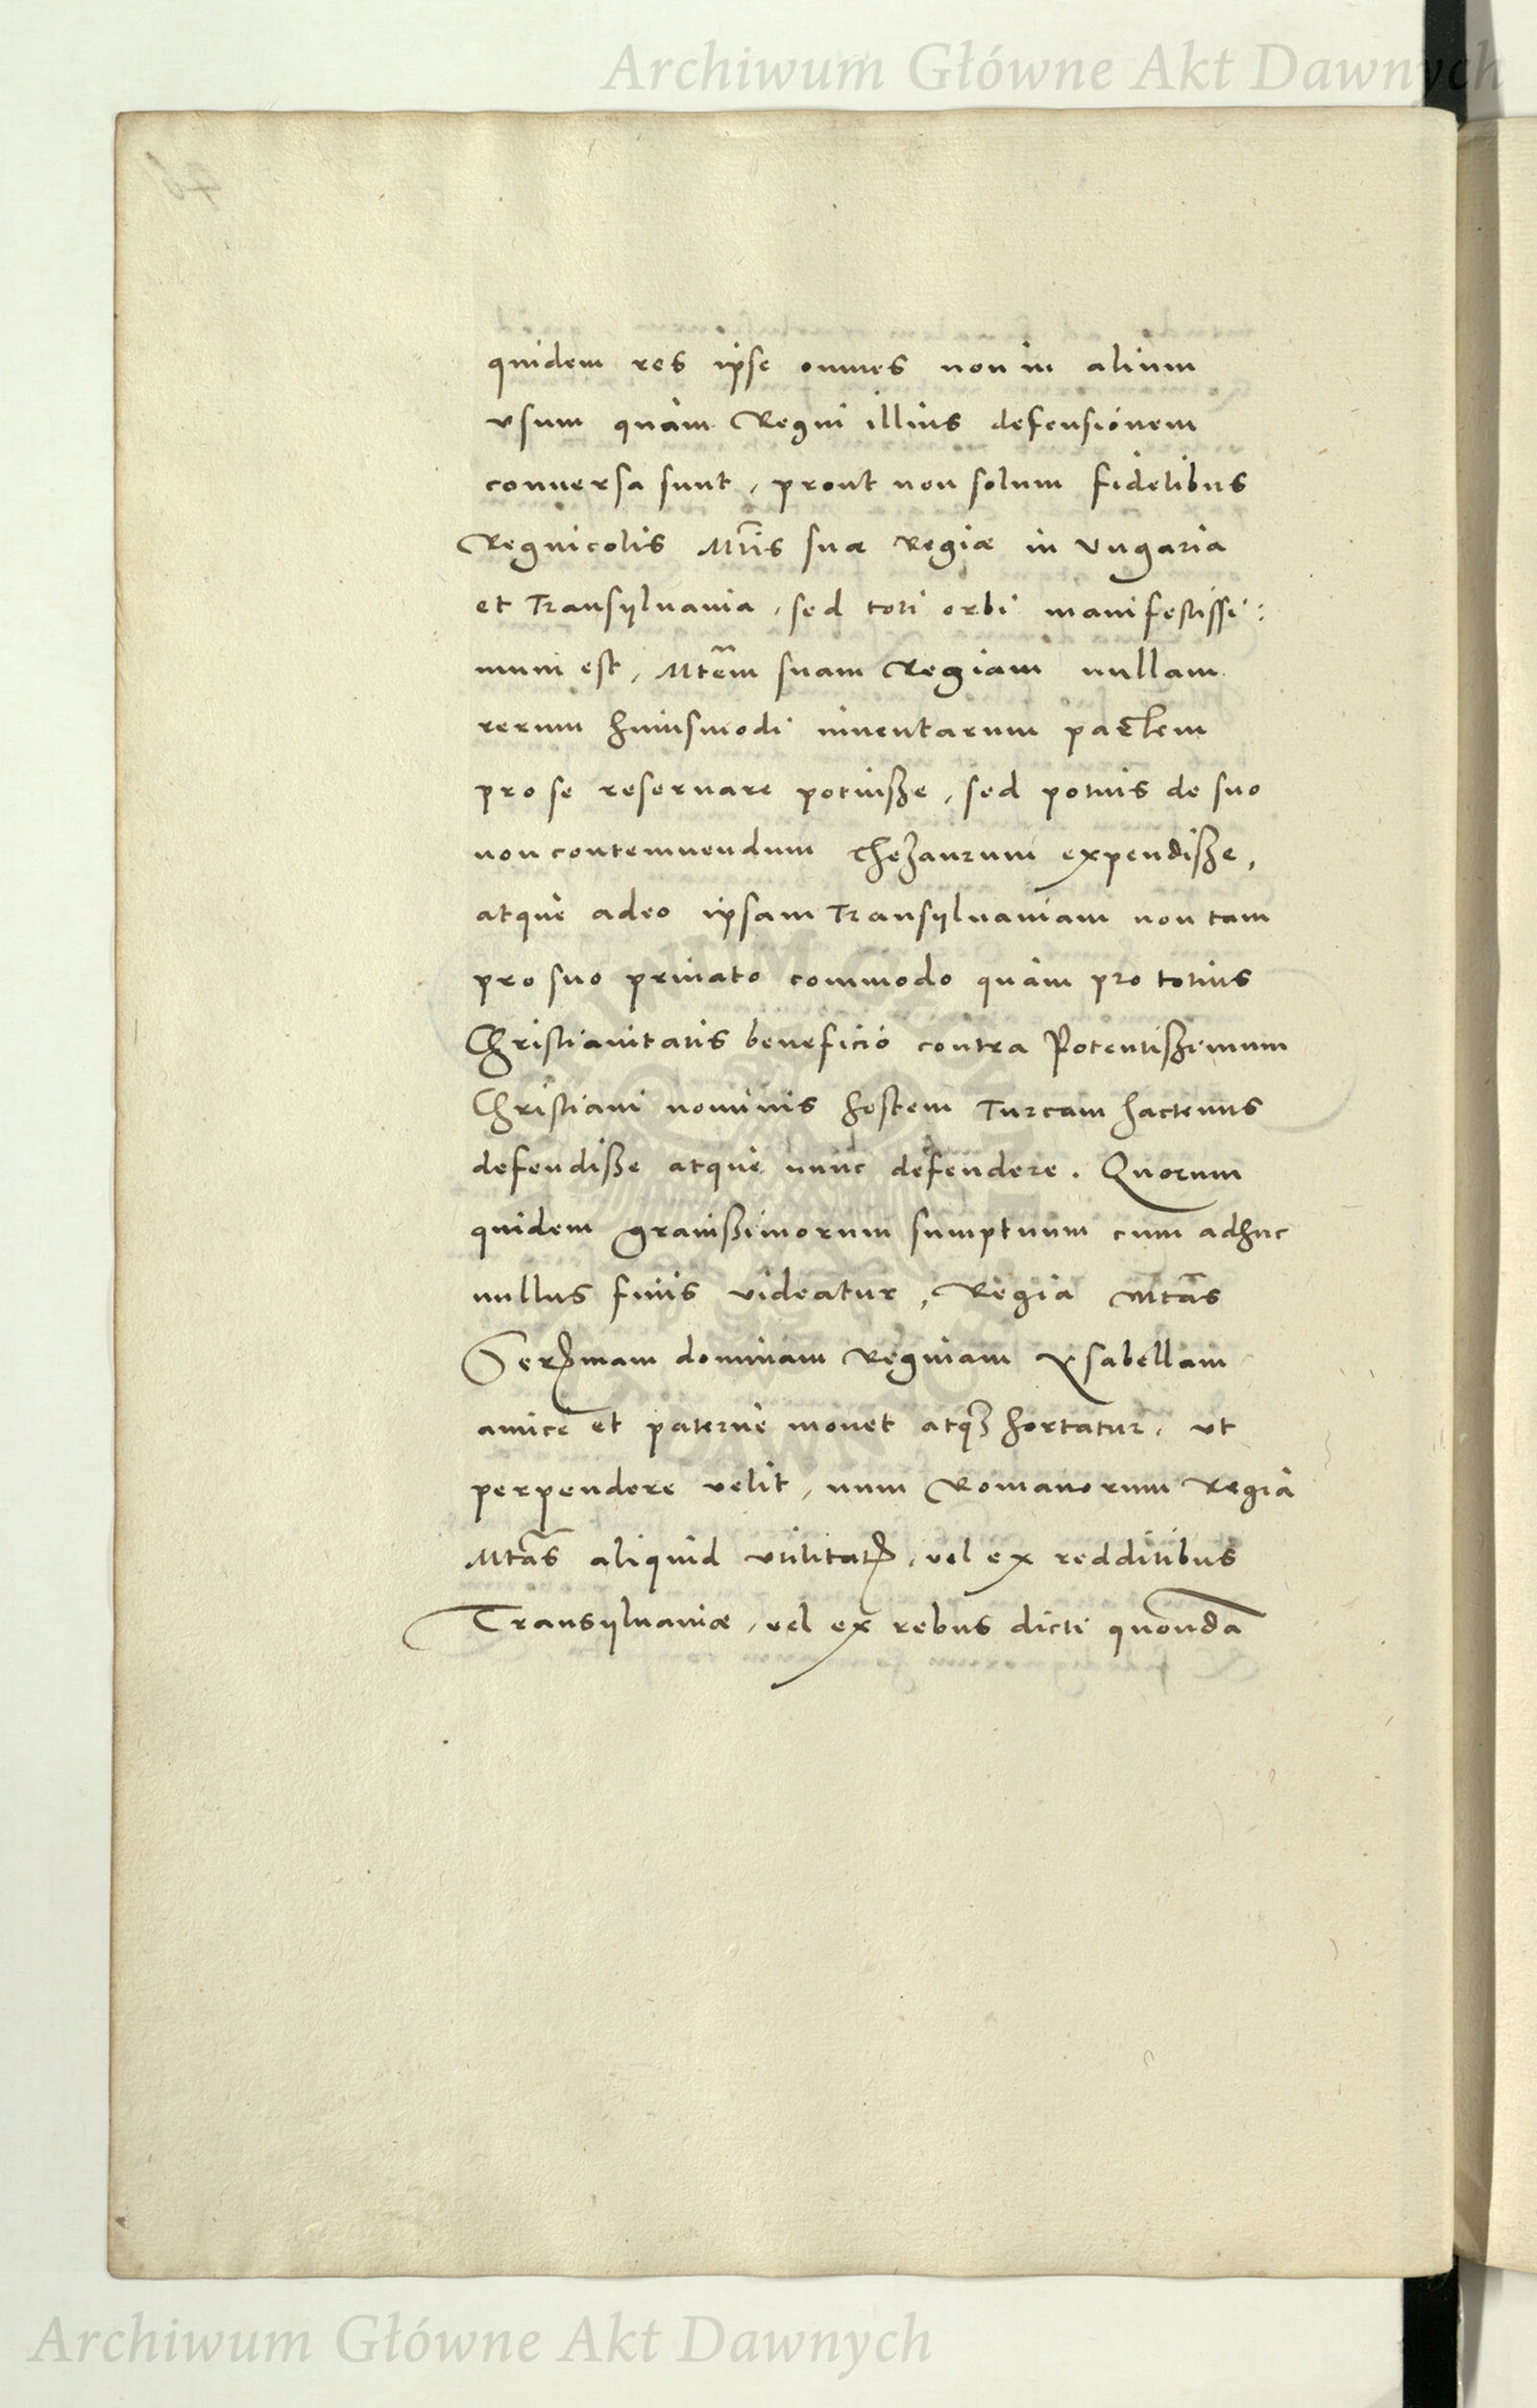 Archiwum Główne Akt Dawnych
quidem res ipse omnes non in alium
vsum quàm Regni illius defensionem
conuersa sunt, prout non solum fidelibus
Regnicolis Mtis suæ Regiæ in Vngaria
et Transyluania, sed toti orbi manifestissi:
mum est, Mtem suam Regiam nullam
rerum huiusmodi inuentarum partem
pro se reseruare potuisse, sed potius de suo
non contemnendum thezaurum expendisse,
atque adeo ipsam Transyluaniam non tam
pro suo priuato commodo quàm pro totius
Christianitatis beneficio contra Potentissimum
Christiani nominis hostem Turcam hactenus
defendisse atque nunc defendere. Quorum
quidem grauissimorum sumptuum cum adhuc
nullus finis videatur, Regia Mtas
Sermam dominam Reginam Ysabellam
amice et paterne monet atq hortatur, vt
perpendere velit, num Romanorum Regia
Mtas aliquid vtilitatis, vel ex redditibus
Transyluaniæ, vel ex rebus dicti quondã
Archiwum Główne Akt Dawnych